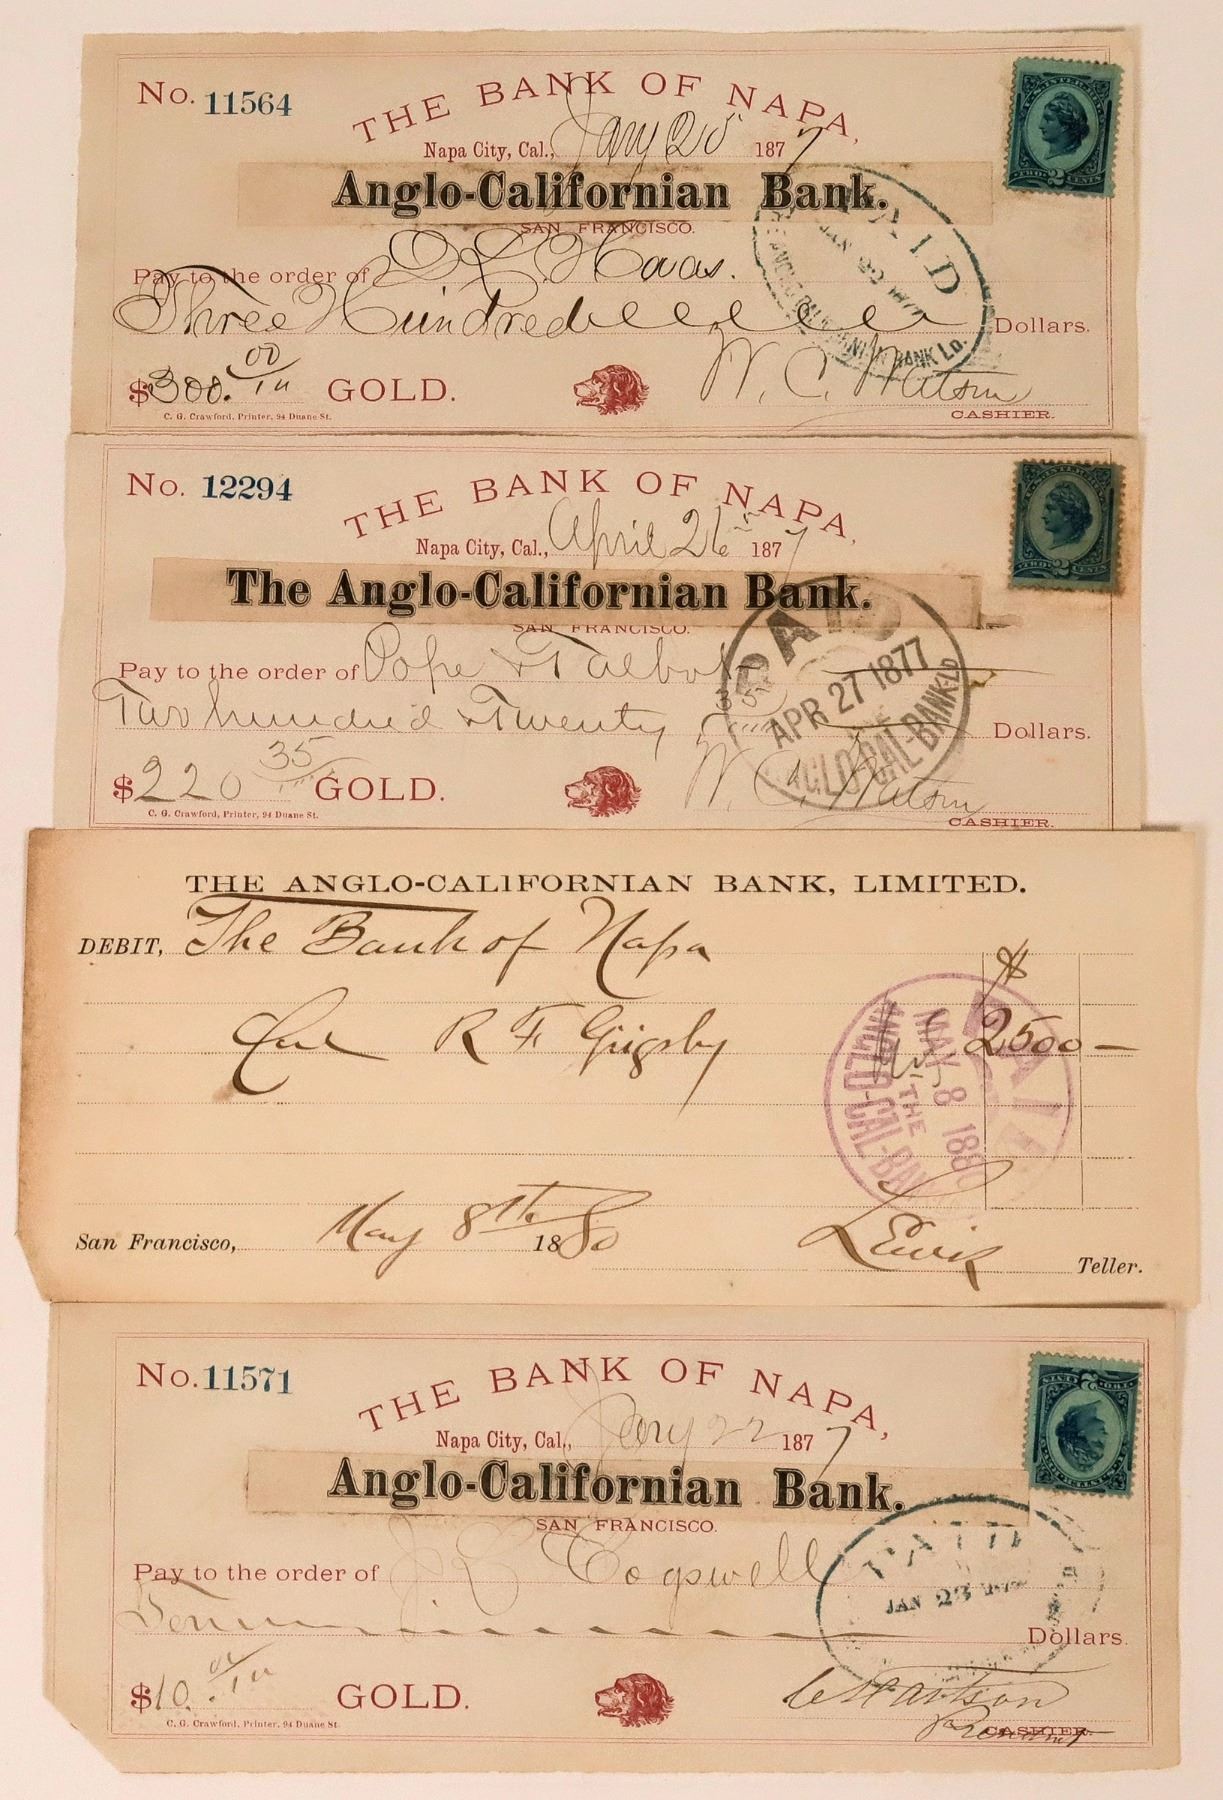 No. 11564
THE BANK OF NAPA,
Napa City, Cal., Jany 20 1877
Anglo-Californian Bank.
SAN FRANCISCO.
Pay to the order of Haas.
Three Hundred Dollars.
$300. 00 GOLD. W. C. Watson
C. G. Crawford, Printer, 94 Duane St. CASHIER.
PAID
JAN 22 1877
ANGLO CALIFORNIAN BANK LD.
TWO 2 CENTS
No. 12294
THE BANK OF NAPA,
Napa City, Cal., April 26th 1877
The Anglo-Californian Bank.
SAN FRANCISCO.
Pay to the order of Pope & Talbot
Two hundred & Twenty 35 Dollars.
$220 35 GOLD. W. C. Watson
C. G. Crawford, Printer, 94 Duane St. CASHIER.
PAID
APR 27 1877
ANGLO-CAL-BANK-LD
TWO 2 CENTS
THE ANGLO-CALIFORNIAN BANK, LIMITED.
DEBIT, The Bank of Napa
$
R F Grigsby 2500 —
PAID
MAY 8 1880
THE
ANGLO-CAL-BANK
San Francisco, May 8th 1880
Teller.
No. 11571
THE BANK OF NAPA,
Napa City, Cal., Jany 22 1877
Anglo-Californian Bank.
SAN FRANCISCO.
Pay to the order of J E Cogswell
Ten Dollars.
$10. GOLD.
C. G. Crawford, Printer, 94 Duane St. CASHIER.
PAID
JAN 23